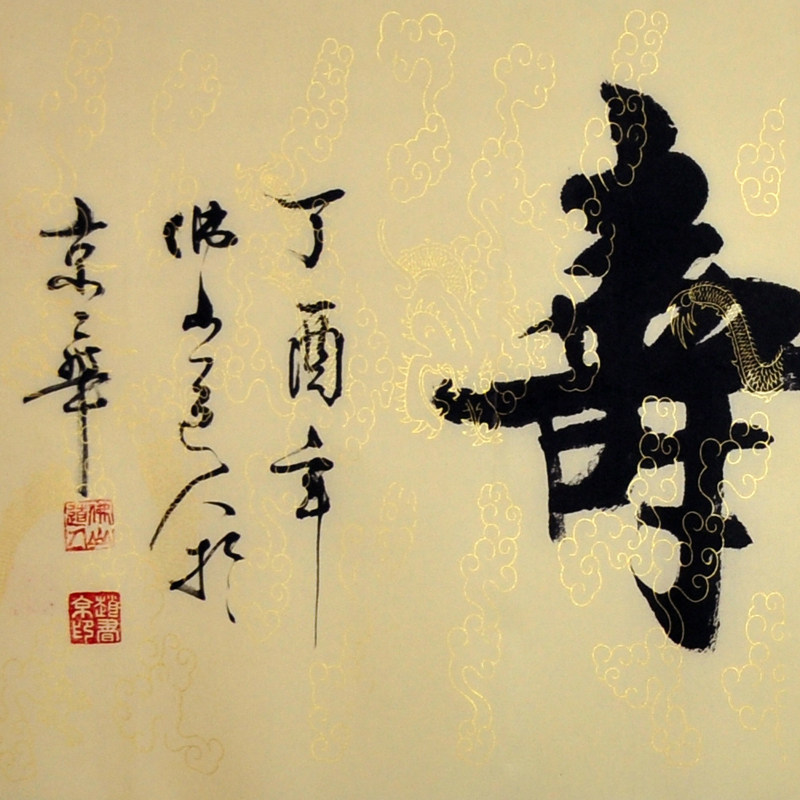 壽
丁酉年
佛山道人於
京華
佛山道人
趙書京印